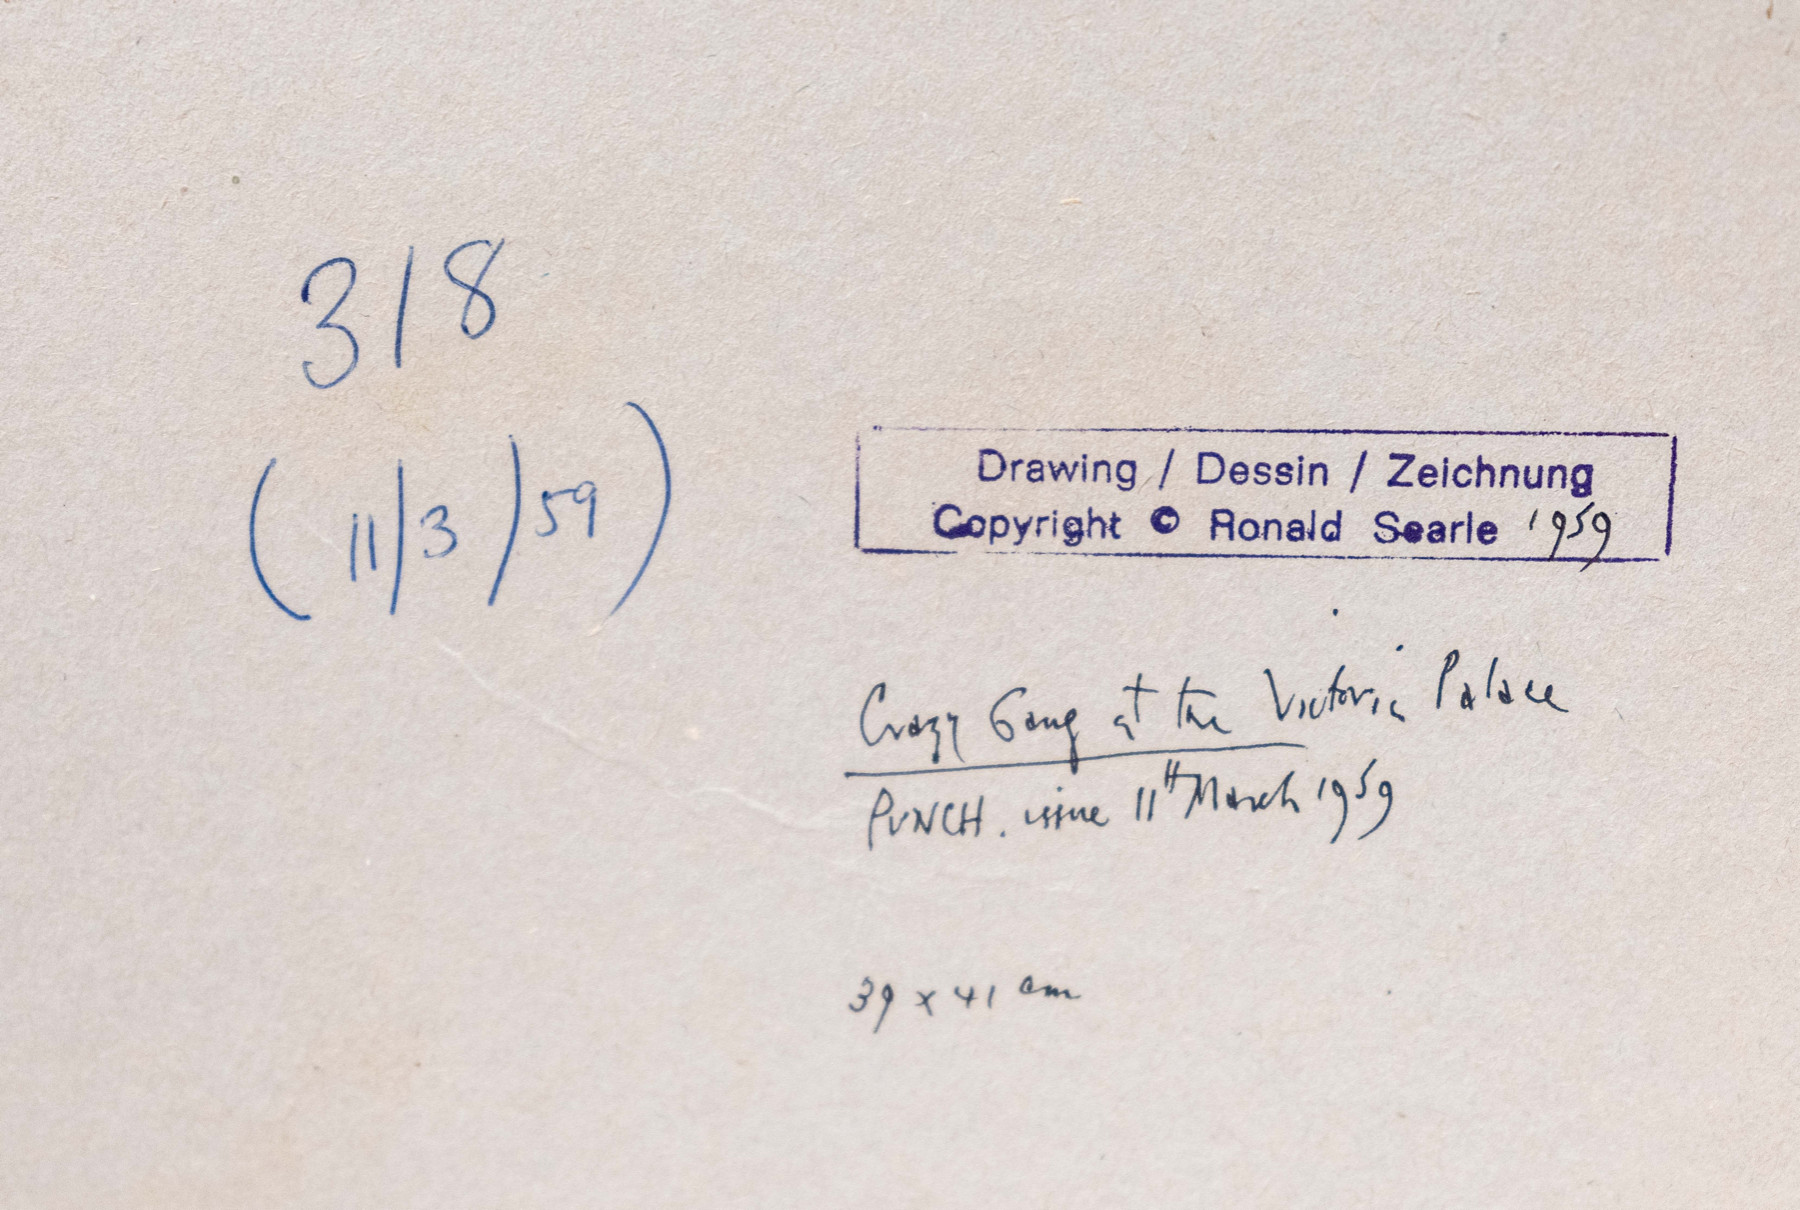 318
(11/3/59)
Drawing / Dessin / Zeichnung
Copyright © Ronald Searle 1959
Crazy Gang at the Victoria Palace
PUNCH. issue 11th March 1959
39 x 41 cm